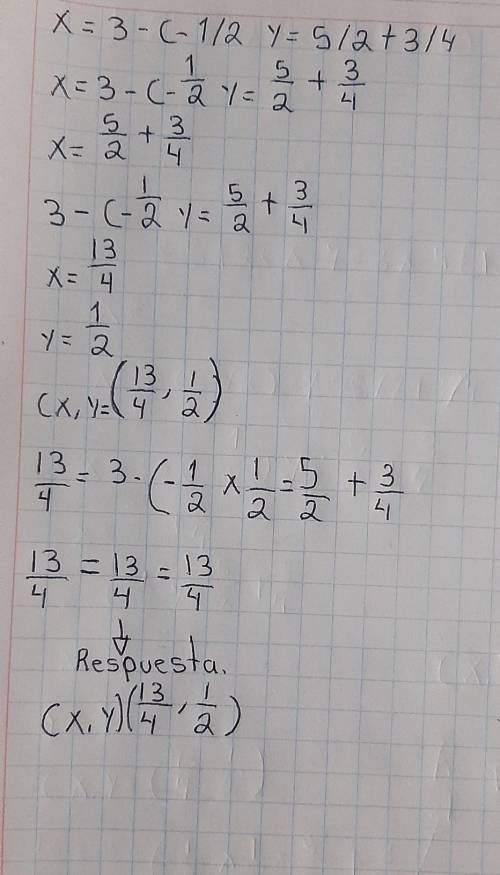 x = 3 - (- 1/2 y = 5/2 + 3/4
x = 3 - (- 1/2 y = 5/2 + 3/4
x = 5/2 + 3/4
3 - (- 1/2 y = 5/2 + 3/4
x = 13/4
y = 1/2
(x, y = (13/4, 1/2)
13/4 = 3 - (- 1/2 x 1/2 = 5/2 + 3/4
13/4 = 13/4 = 13/4
↓
Respuesta.
(x, y) (13/4, 1/2)